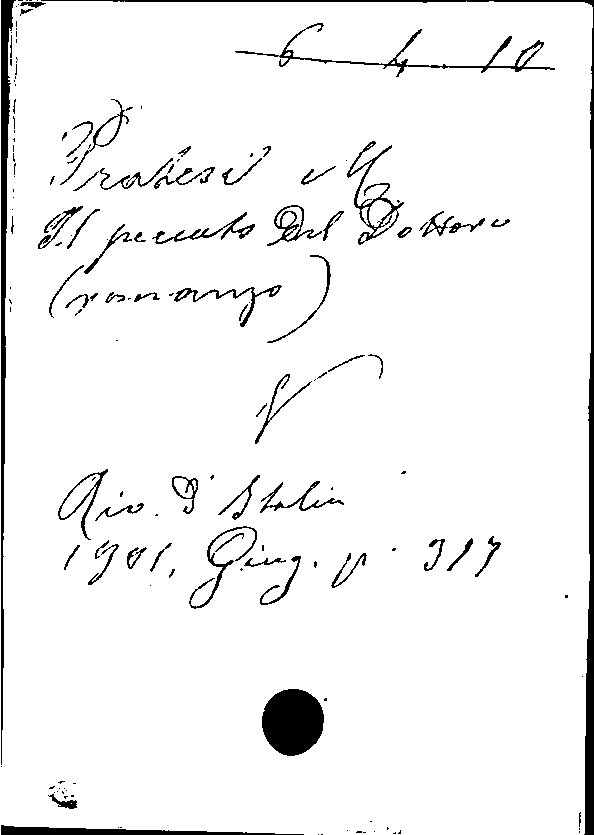 6 4 10
Pratesi M
Il peccato del Dottore
(romanzo)
V
Riv. d'Italia
1901, Giug. p. 317